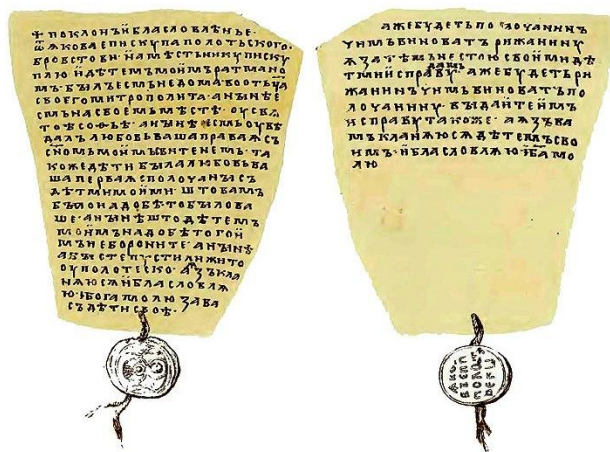 + поклонъ й бласловлѣнье ·
ѿ ꙗкова епискупа полотьского ·
бровстови · й намѣстьнику писку
плю й дѣтемъ моимъ ратмано
мъ · былъ есмь не дома во отца
своего митрополита · а нынѣ е
смь на своемь мѣстѣ · оу свѧ
тоѣ софьѣ · а нынѣ есмь оувѣ
далъ любовь ваша праваꙗ съ
сномь моимь витенемь · та
коже дѣти была любовь ва
ша перваꙗ с полоуаны с
дѣтми моими · што вамъ
было надобѣ то было ва
ше · а нынѣ што дѣтемъ
моимъ надобѣ того й
мъ не бороните · а нынѣ
абысте пустили жито
оу полотеско · а ꙗзъ кла
нꙗюсꙗ й бласловлꙗ
ю · й бога молю за ва
съ дѣти своѣ ·
аже будеть полоуанинъ
уимъ виноватъ рижанину
ꙗ за тѣмь не стою своими дѣ
тми исправу дамъ · аже будеть ри
жанинъ уимь виноватъ по
лоуанину · выдайте имъ
исправу такоже · а ꙗзъ ва
мъ кланꙗюсꙗ дѣтемъ сво
имъ · й бласловлꙗю й ба мо
лю